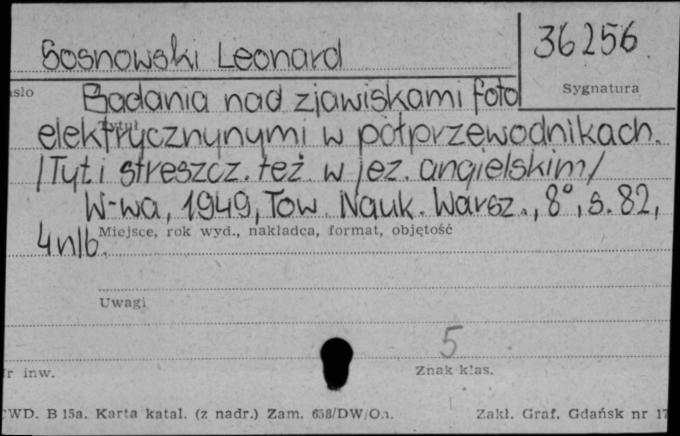 Sosnowski Leonard
36256
Sygnatura
asło
Badania nad zjawiskami foto
elektrycznynymi w półprzewodnikach.
/Tyt. i streszcz. też w jęz. angielskim/
W-wa, 1949, Tow. Nauk. Warsz., 8°, s. 82,
4 nlb.
Miejsce, rok wyd., nakładca, format, objętość
Uwagi
5
r inw.
Znak klas.
WD. B 15a. Karta katal. (z nadr.) Zam. 658/DW/On.
Zakł. Graf. Gdańsk nr 17